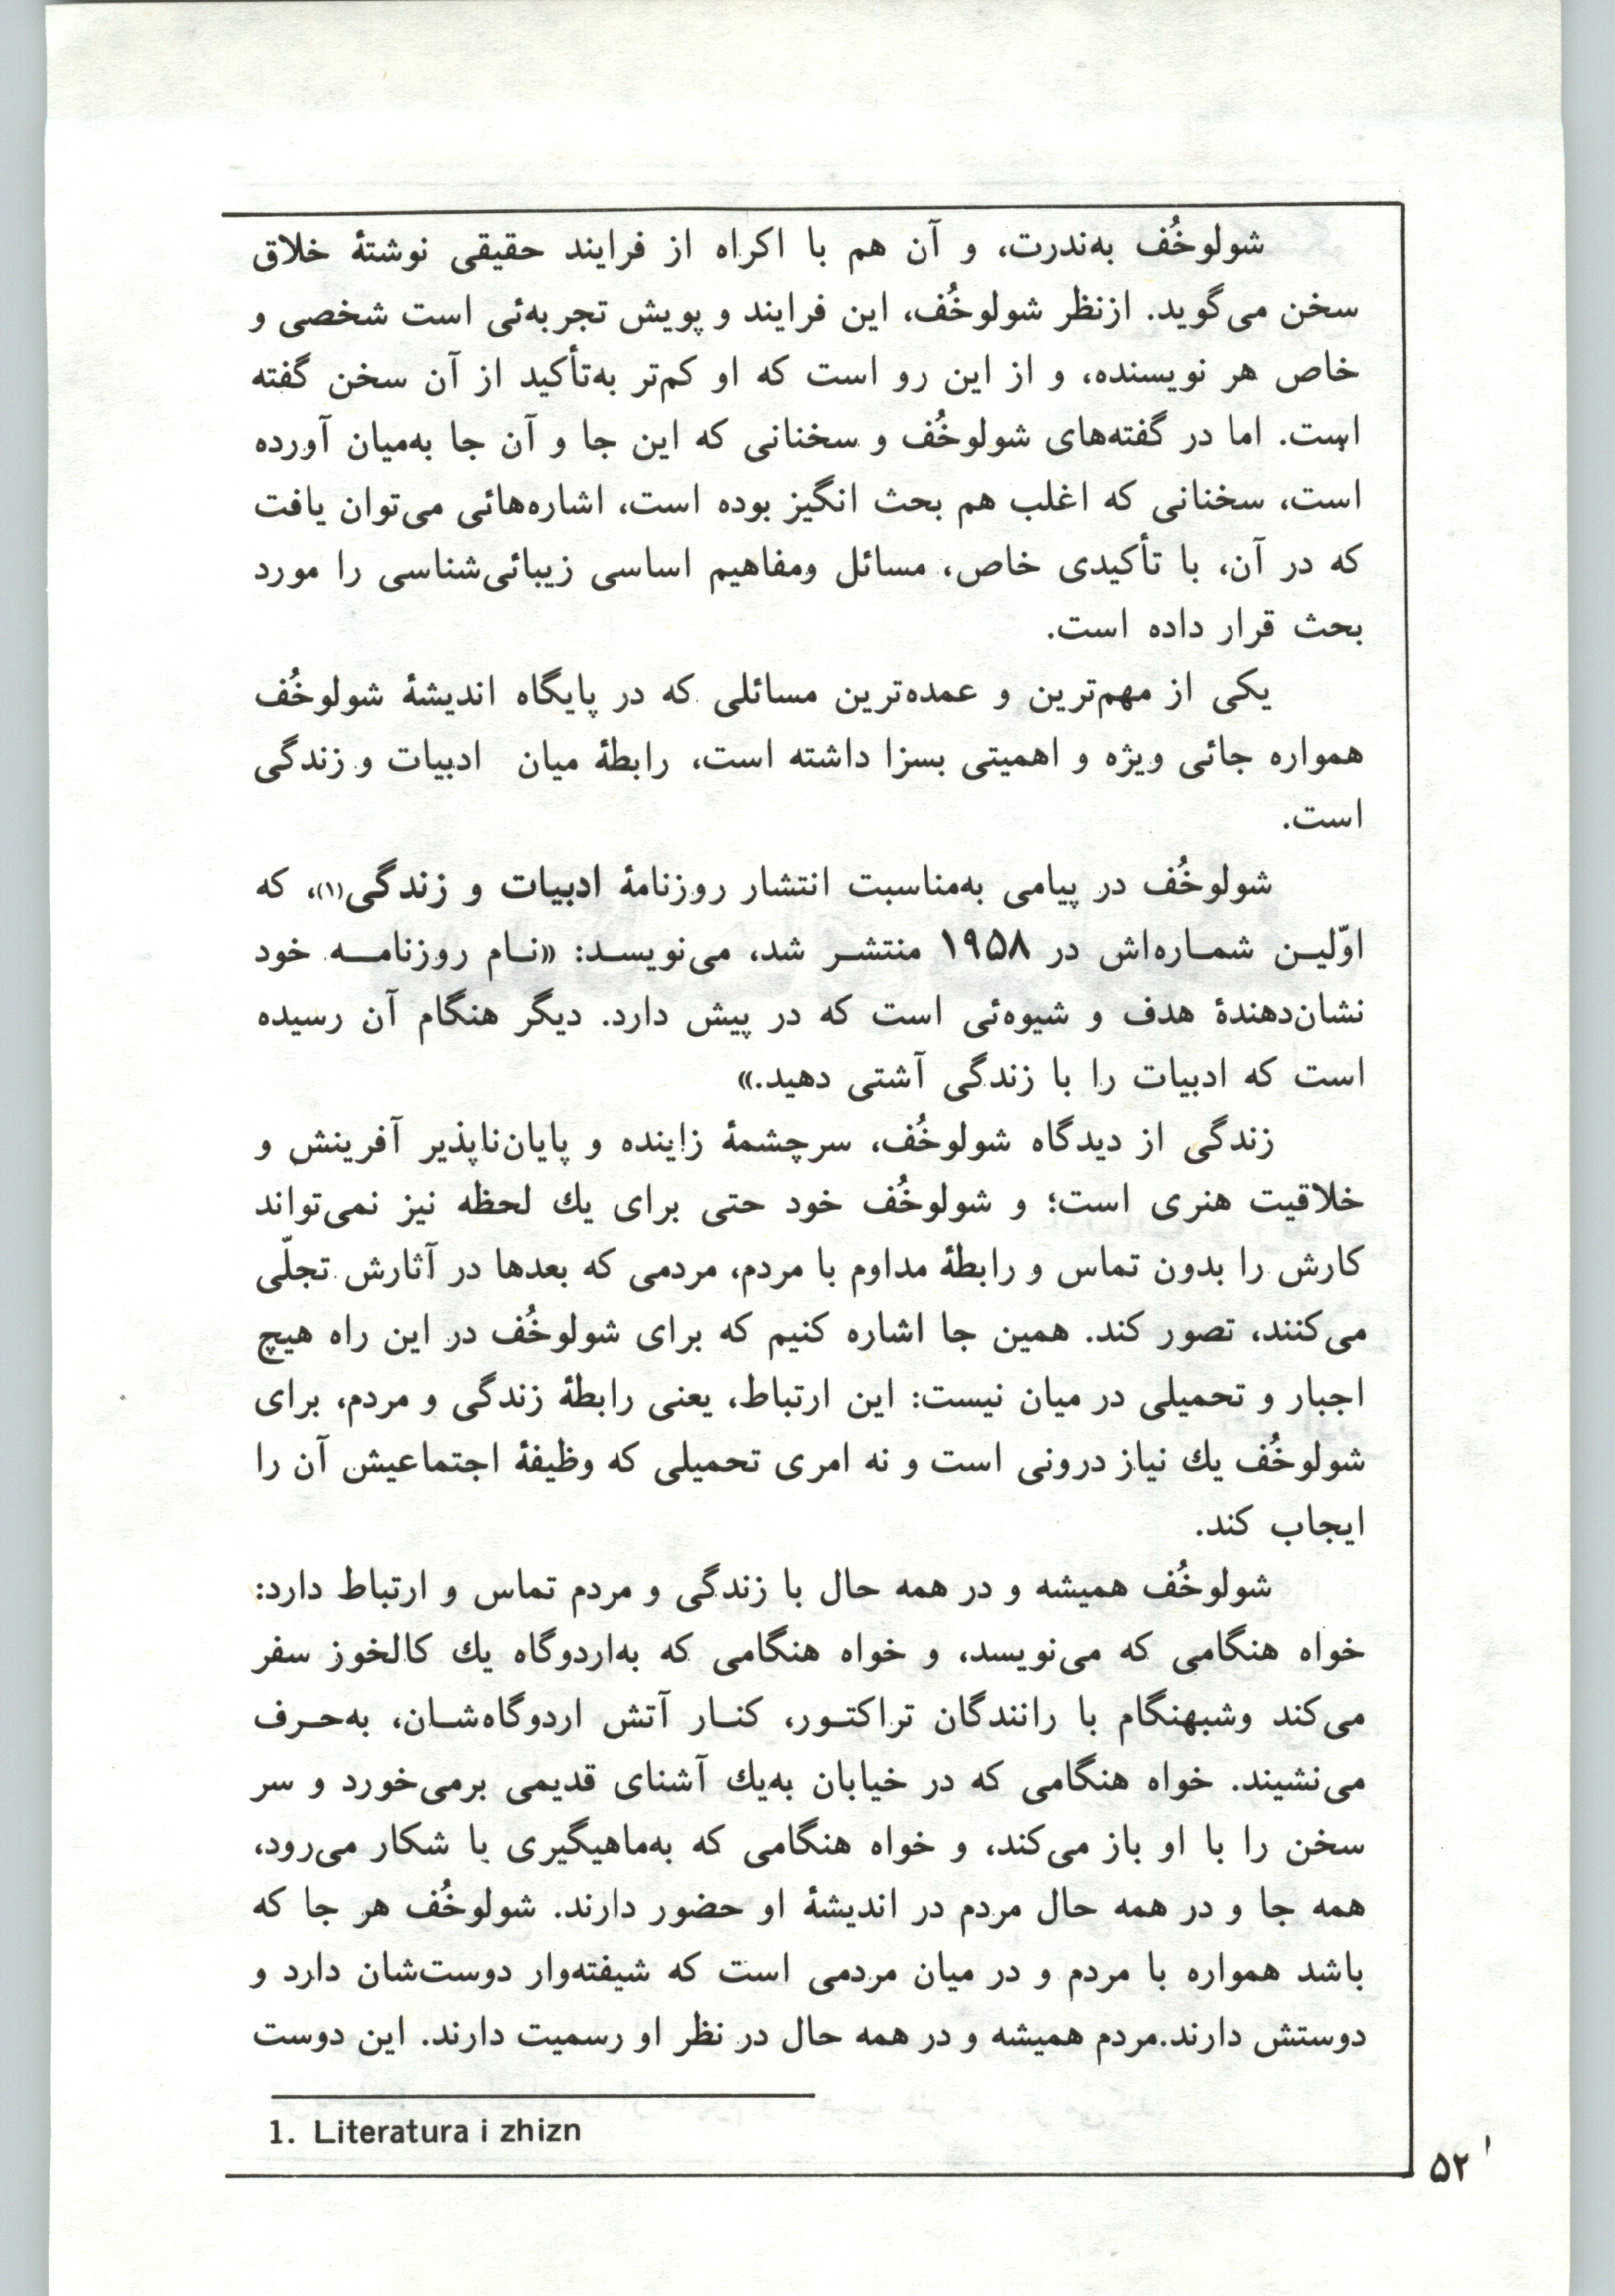 شولوخُف به‌ندرت، و آن هم با اکراه از فرایند حقیقی نوشتهٔ خلاق
سخن می‌گوید. ازنظر شولوخُف، این فرایند و پویش تجربه‌ئی است شخصی و
خاص هر نویسنده، و از این رو است که او کم‌تر به‌تأکید از آن سخن گفته
است. اما در گفته‌های شولوخُف و سخنانی که این جا و آن جا به‌میان آورده
است، سخنانی که اغلب هم بحث انگیز بوده است، اشاره‌هائی می‌توان یافت
که در آن، با تأکیدی خاص، مسائل ومفاهیم اساسی زیبائی‌شناسی را مورد
بحث قرار داده است.
یکی از مهم‌ترین و عمده‌ترین مسائلی که در پایگاه اندیشهٔ شولوخُف
همواره جائی ویژه و اهمیتی بسزا داشته است، رابطهٔ میان ادبیات و زندگی
است.
شولوخُف در پیامی به‌مناسبت انتشار روزنامهٔ ادبیات و زندگی(۱)، که
اوّلیـن شمـاره‌اش در ۱۹۵۸ منتشـر شد، می‌نویسـد: «نـام روزنامـه خود
نشان‌دهندهٔ هدف و شیوه‌ئی است که در پیش دارد. دیگر هنگام آن رسیده
است که ادبیات را با زندگی آشتی دهید.»
زندگی از دیدگاه شولوخُف، سرچشمهٔ زاینده و پایان‌ناپذیر آفرینش و
خلاقیت هنری است؛ و شولوخُف خود حتی برای یك لحظه نیز نمی‌تواند
کارش را بدون تماس و رابطهٔ مداوم با مردم، مردمی که بعدها در آثارش تجلّی
می‌کنند، تصور کند. همین جا اشاره کنیم که برای شولوخُف در این راه هیچ
اجبار و تحمیلی در میان نیست: این ارتباط، یعنی رابطهٔ زندگی و مردم، برای
شولوخُف یك نیاز درونی است و نه امری تحمیلی که وظیفهٔ اجتماعیش آن را
ایجاب کند.
شولوخُف همیشه و در همه حال با زندگی و مردم تماس و ارتباط دارد:
خواه هنگامی که می‌نویسد، و خواه هنگامی که به‌اردوگاه یك کالخوز سفر
می‌کند وشبهنگام با رانندگان تراکتـور، کنـار آتش اردوگاه‌شـان، به‌حـرف
می‌نشیند. خواه هنگامی که در خیابان به‌یك آشنای قدیمی برمی‌خورد و سر
سخن را با او باز می‌کند، و خواه هنگامی که به‌ماهیگیری یا شکار می‌رود،
همه جا و در همه حال مردم در اندیشهٔ او حضور دارند. شولوخُف هر جا که
باشد همواره با مردم و در میان مردمی است که شیفته‌وار دوست‌شان دارد و
دوستش دارند.مردم همیشه و در همه حال در نظر او رسمیت دارند. این دوست
1. Literatura i zhizn
۵۲